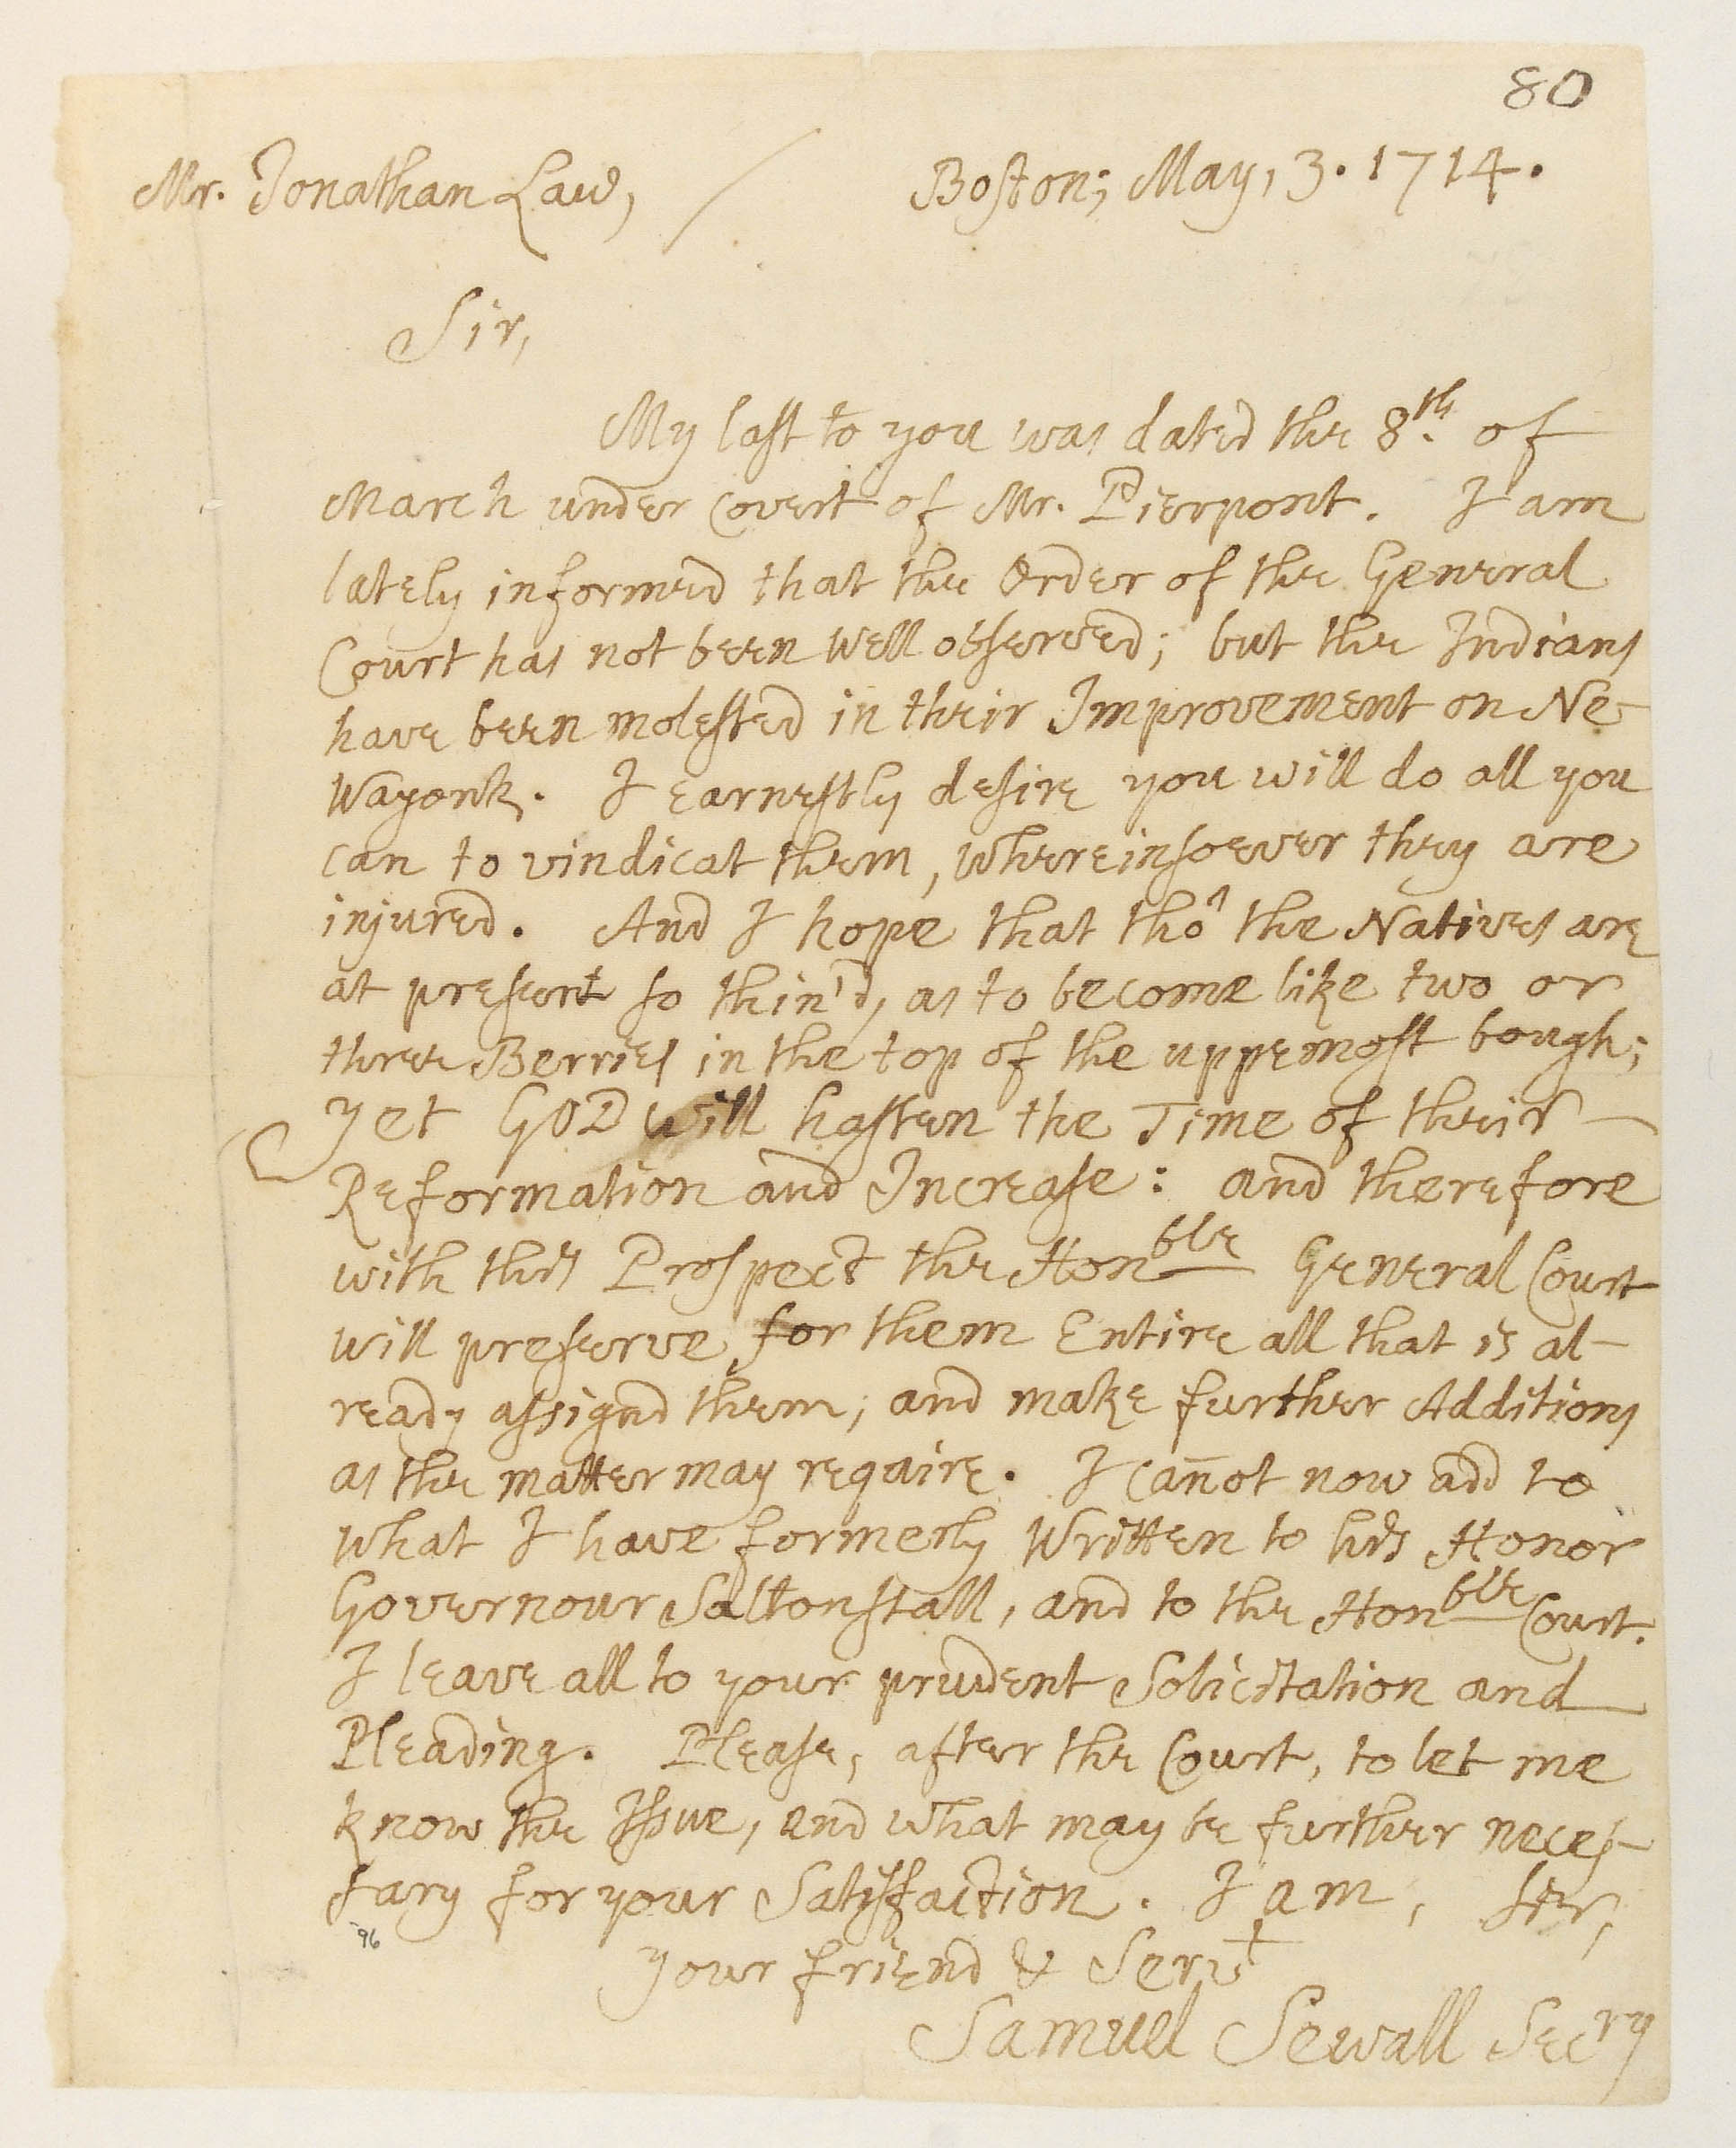 80
Mr. Jonathan Law, Boston; May, 3. 1714.
Sir,
My last to you was dated the 8th. of
March under Covert of Mr. Pierpont. I am
lately informed that the Order of the General
Court has not been well observed; but the Indians
have been molested in their Improvement on Ne-
wayonk. I earnestly desire you will do all you
can to vindicat them, whereinsoever they are
injured. And I hope that tho' the Natives are
at present so thin'd, as to become like two or
three Berries in the top of the uppemost bough;
yet GOD will hasten the Time of their
Reformation and Increase: and therefore
with this Prospect the Honble General Court
will preserve for them Entire all that is al-
ready assignd them, and make further Additions
as the matter may require. I cañot now add to
what I have formerly written to his Honor
Governour Saltonstall, and to the Honble Court.
I leave all to your prudent Solicitation and
Pleading. Please, after the Court, to let me
know the Issue, and what may be further neces-
sary for your Satisfaction. I am, Sir,
96
your friend & Servt
Samuel Sewall Secry